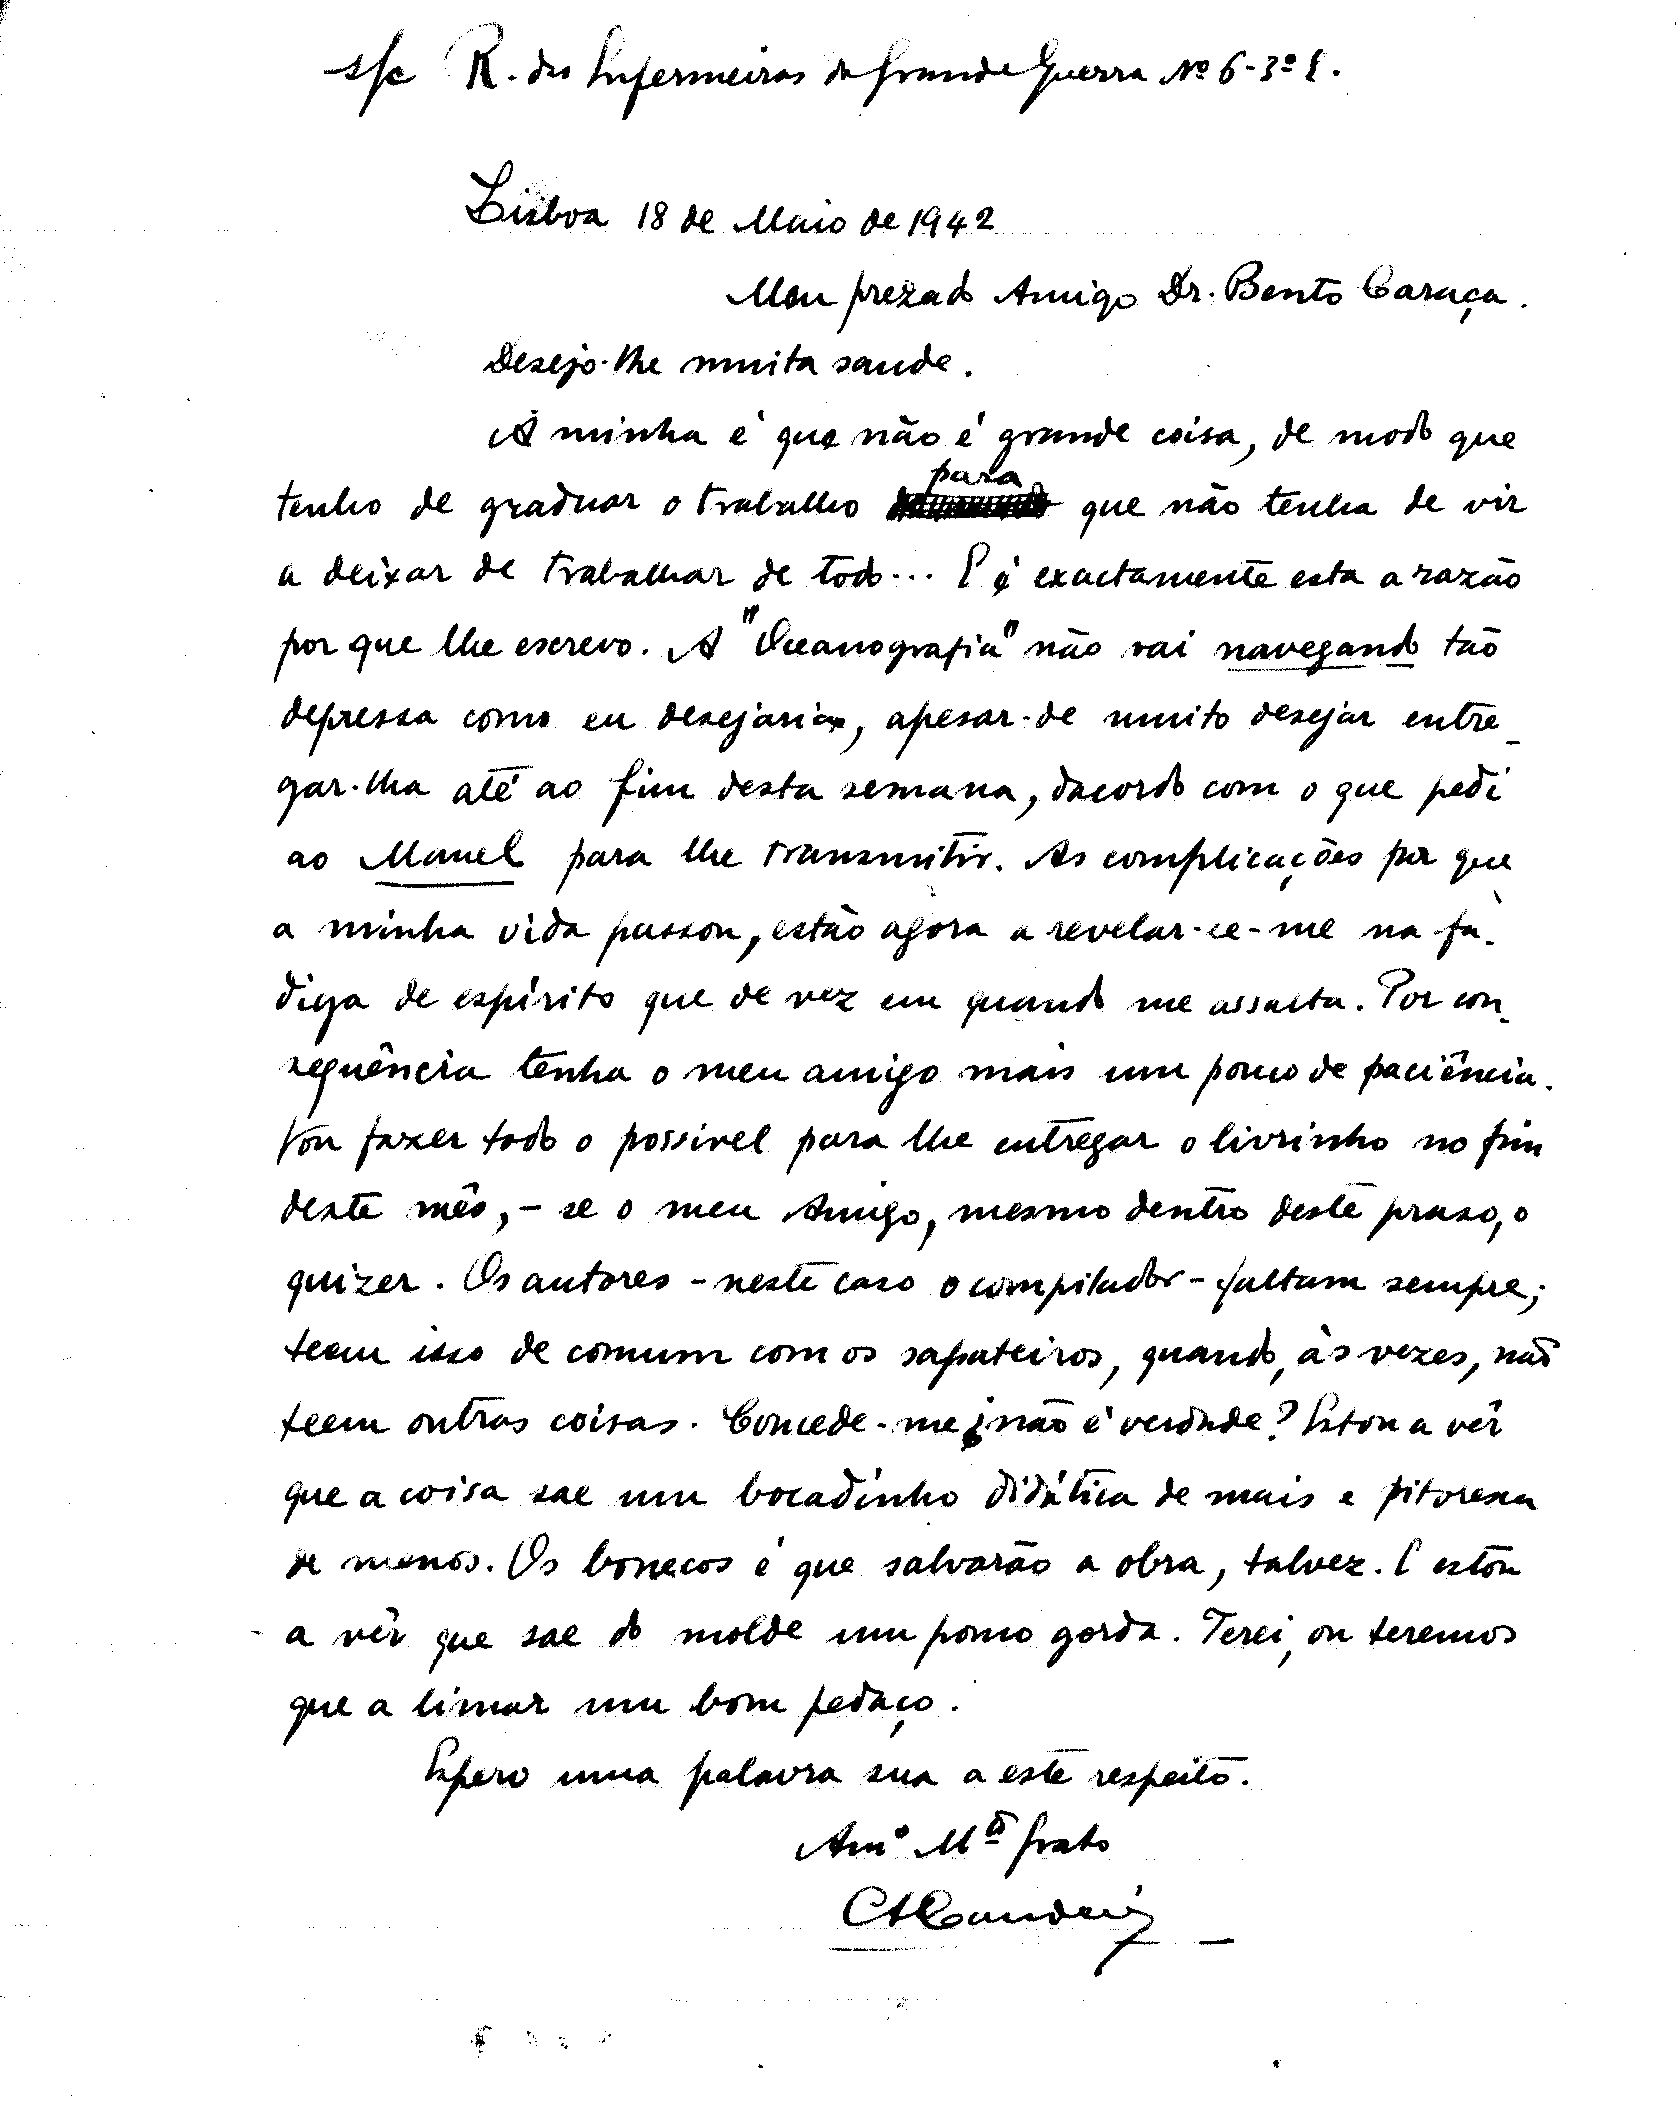 s/c R. das Enfermeiras da Grande Guerra Nº 6-3º E.
Lisboa 18 de Maio de 1942
Meu prezado Amigo Dr. Bento Caraça.
Desejo-lhe muita saude.
A minha é que não é grande coisa, de modo que
para
tenho de graduar o trabalho que não tenha de vir
a deixar de trabalhar de todo... E é exactamente esta a razão
por que lhe escrevo. A "Oceanografia" não vai navegando tão
depressa como eu desejaria, apesar-de muito desejar entre-
gar-lha até ao fim desta semana, dacordo com o que pedi
ao Manel para lhe transmitir. As complicações por que
a minha vida passou, estão agora a revelar-se-me na fa-
diga de espírito que de vez em quando me assalta. Por con-
sequência tenha o meu amigo mais um pouco de paciência.
Vou fazer todo o possivel para lhe entregar o livrinho no fim
deste mês, - se o meu Amigo, mesmo dentro deste praso, o
quizer. Os autores - neste caso o compilador - faltam sempre;
teem isso de comum com os sapateiros, quando, às vezes, não
teem outras coisas. Concede-me ¿não é verdade? Estou a vêr
que a coisa sae um bocadinho didática de mais e pitoresca
de menos. Os bonecos é que salvarão a obra, talvez. E estou
a vêr que sae do molde um pouco gorda. Terei, ou teremos
que a limar um bom pedaço.
Espero uma palavra sua a este respeito.
Amº Mtº Grato